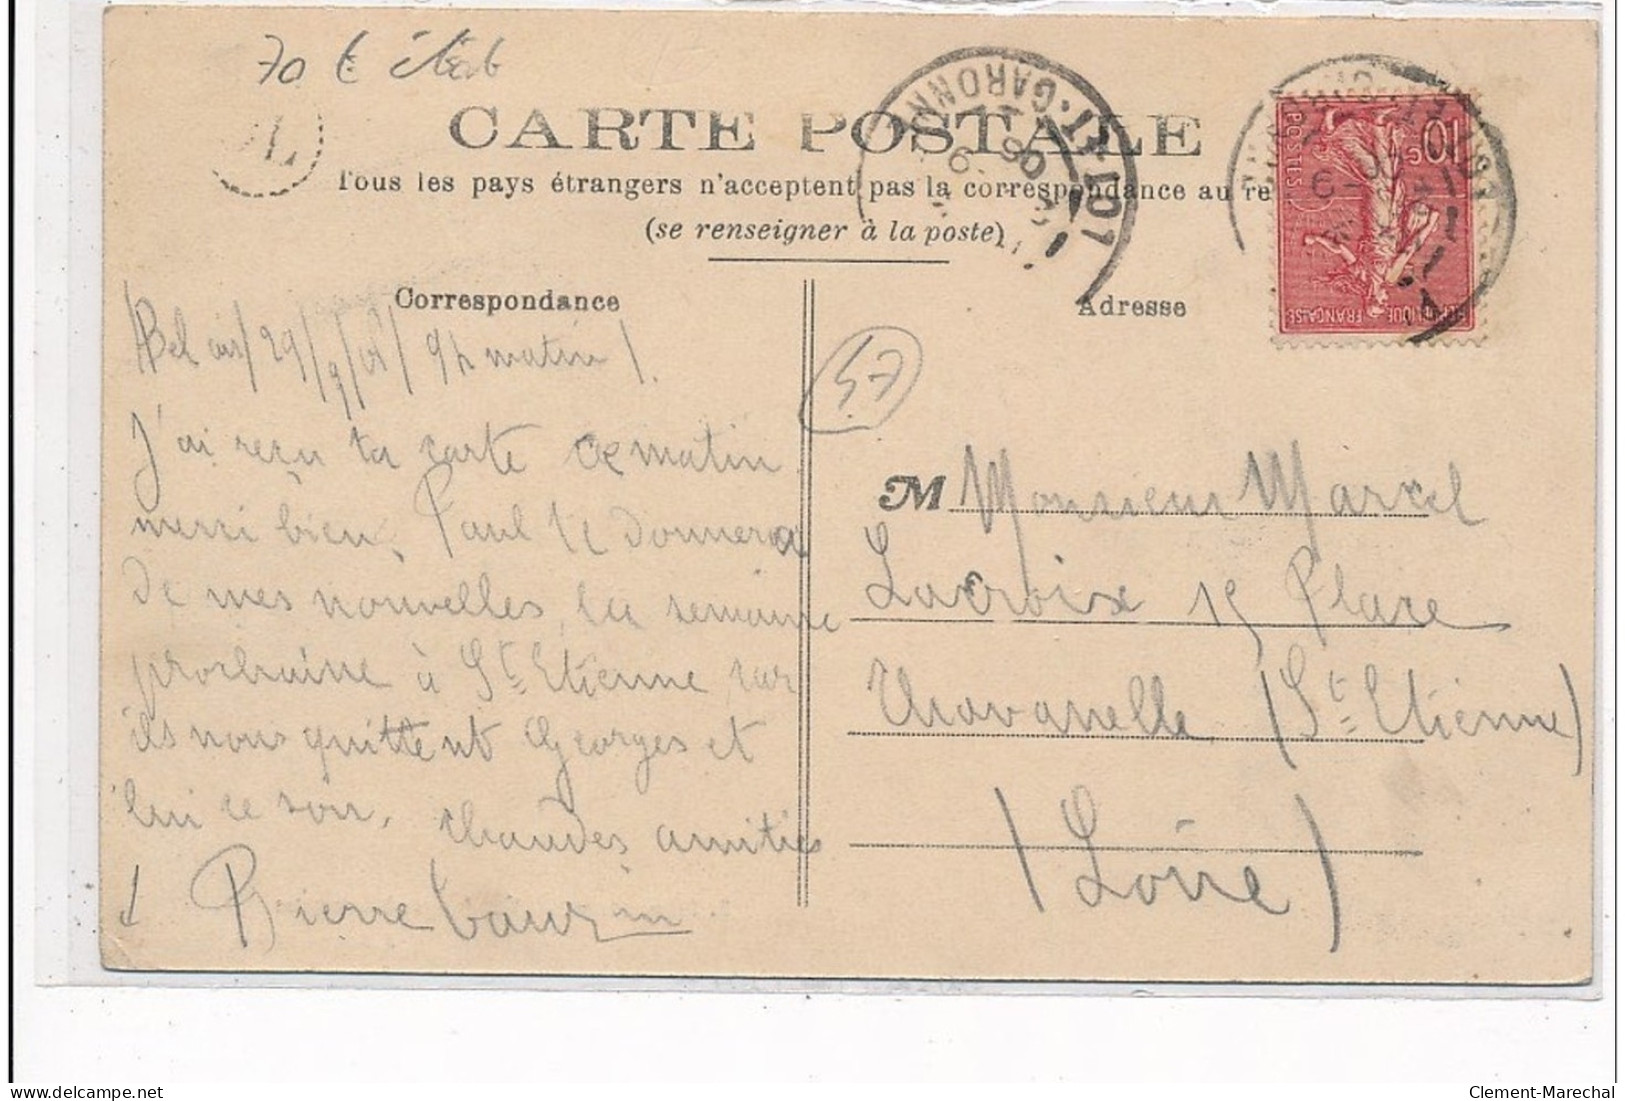 70
CARTE POSTALE
Tous les pays étrangers n'acceptent pas la correspondance au re
(se renseigner à la poste)
LOT-ET-GARONNE
Correspondance
Adresse
10 c
POSTES
REPUBLIQUE FRANÇAISE
Bel air/29/9/06/9h matin/.
J'ai reçu ta carte ce matin
merci bien. Paul te donnera
de mes nouvelles, la semaine
prochaine à St-Etienne, car
ils nous quittent Georges et
lui ce soir. Chaudes amitiés
Pierre
57
M Monsieur Marcel
Lacroix 15 Place
Chavanelle (St-Etienne)
(Loire)
Clement-Marechal